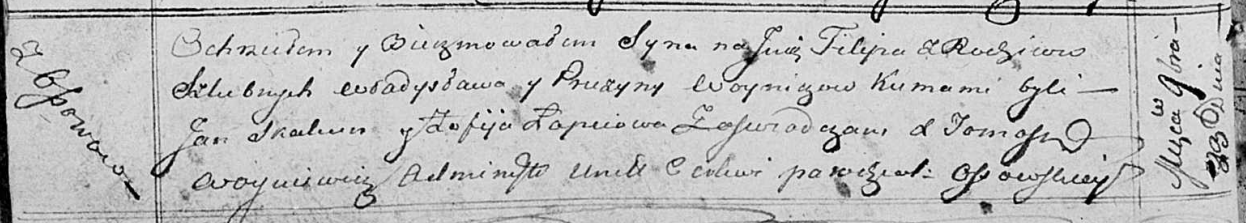 Z Osowa
Ochrzciłem y Bierzmowałem Syna na Imię Filipa z Rodziców
Szlubnych Władysława y Pruzyny Woyniczow Kumami byli
Jan Skakun y Zofija Łapciowa Zaświadczam X Tomasz
Woyniewicz Administr Unitt Cerkwi parochial: Osowskiey
Mca w 9bra
23 Dnia